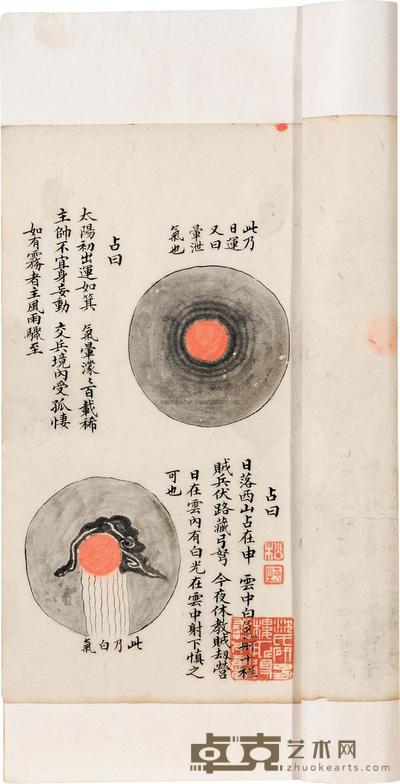 此乃
日運
又曰
暈泄
氣也
占曰
太陽初出運如箕　氣暈濛〻百載稀
主帥不宜身妄動　交兵境內受孤悽
如有霧者主風雨驟至
占曰
日落西山占在申　雲中白
賊兵伏路藏弓弩　今夜休教賊刼營
日在雲內有白光在雲中射下慎之
可也
此乃白氣
卓克艺术网
zhuokearts.com